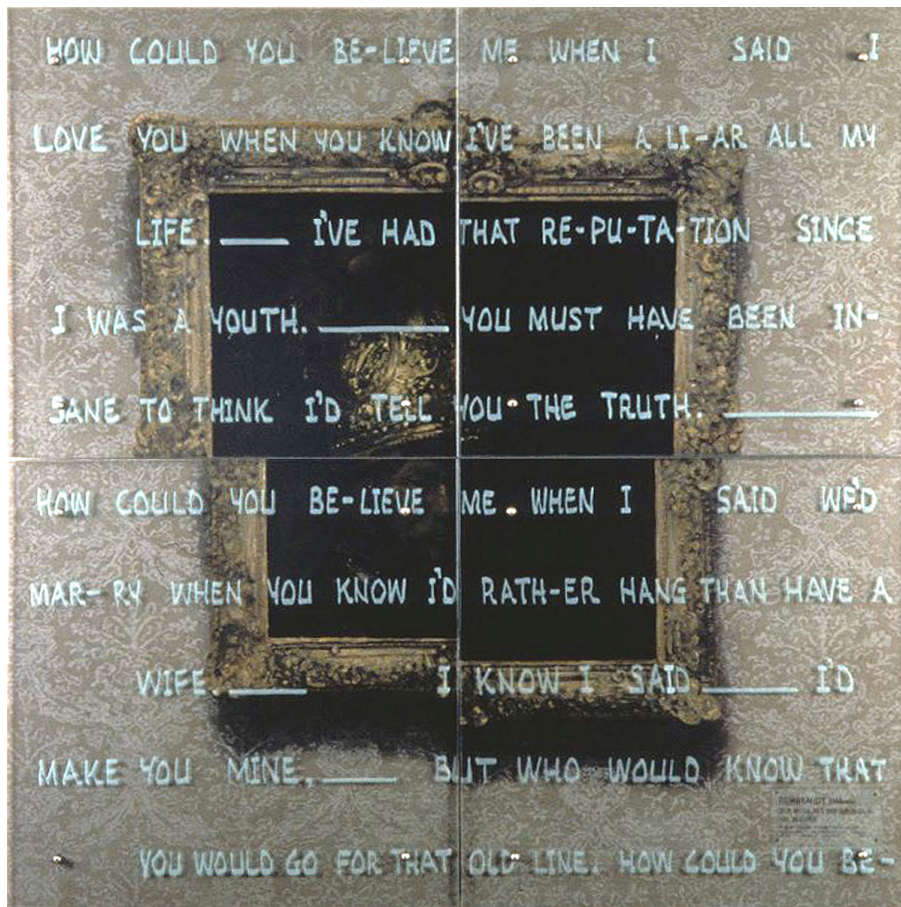 HOW COULD YOU BE-LIEVE ME WHEN I SAID I
LOVE YOU WHEN YOU KNOW I'VE BEEN A LI-AR ALL MY
LIFE.____ I'VE HAD THAT RE-PU-TA-TION SINCE
I WAS A YOUTH.________ YOU MUST HAVE BEEN IN-
SANE TO THINK I'D TELL YOU THE TRUTH.__________
HOW COULD YOU BE-LIEVE ME WHEN I SAID WE'D
MAR-RY WHEN YOU KNOW I'D RATH-ER HANG THAN HAVE A
WIFE.____ I KNOW I SAID_____ I'D
MAKE YOU MINE,____ BUT WHO WOULD KNOW THAT
REMBRANDT
YOU WOULD GO FOR THAT OLD LINE. HOW COULD YOU BE-